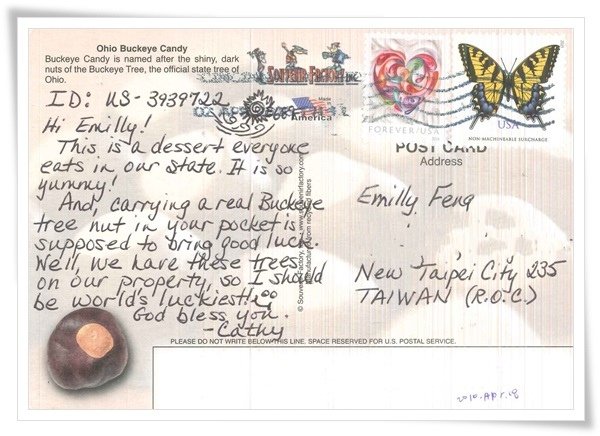 Ohio Buckeye Candy
Buckeye Candy is named after the shiny, dark
nuts of the Buckeye Tree, the official state tree of
Ohio.
ID: US-3939722
Hi Emilly!
This is a dessert everyone
eats in our state. It is so
yummy!
And, carrying a real Buckeye
tree nut in your pocket is
supposed to bring good luck.
Well, we have these trees
on our property, so I should
be world's luckiest!
God bless you.
-Cathy
Souvenir Factory
Made
America
FOREVER/USA
USA
NON-MACHINEABLE SURCHARGE
POST CARD
Address
Emilly Feng
New Taipei City 235
TAIWAN (R.O.C.)
PLEASE DO NOT WRITE BELOW THIS LINE. SPACE RESERVED FOR U.S. POSTAL SERVICE.